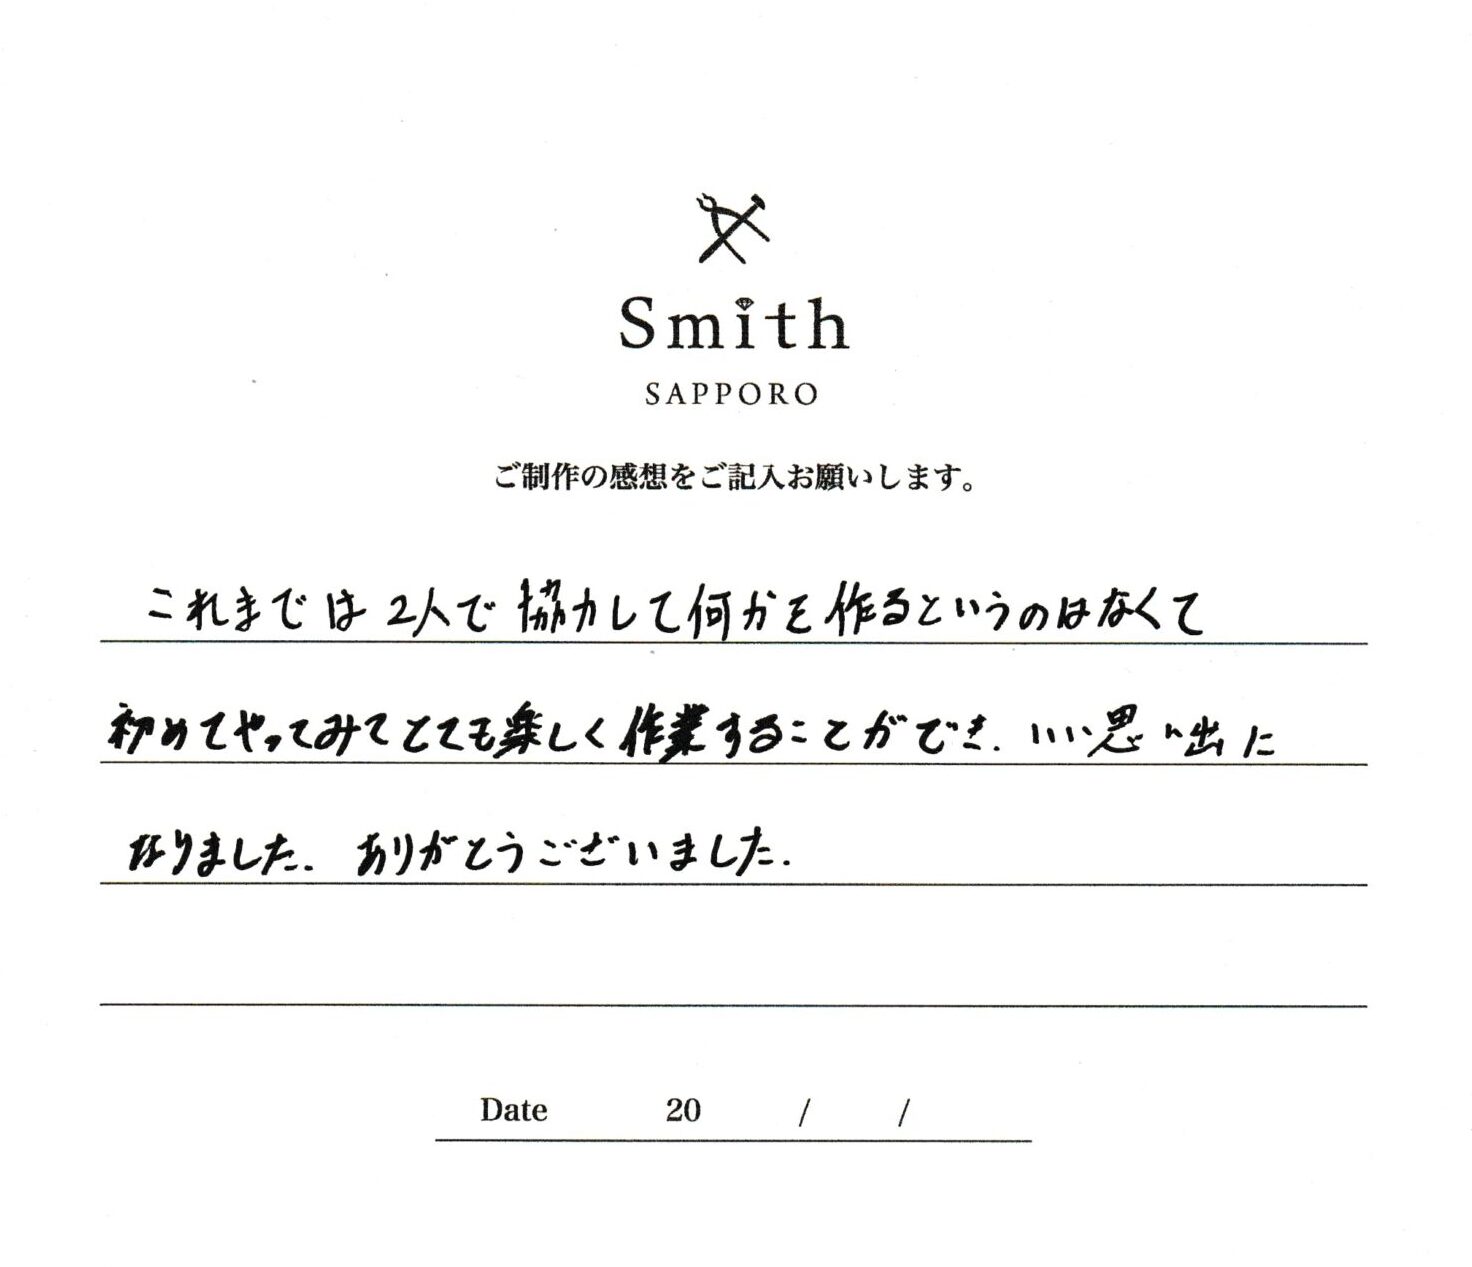 Smith
SAPPORO
ご制作の感想をご記入お願いします。
これまでは2人で協力して何かを作るというのはなくて
初めてやってみてとても楽しく作業することができ、いい思い出に
なりました。ありがとうございました。
Date 20 / /